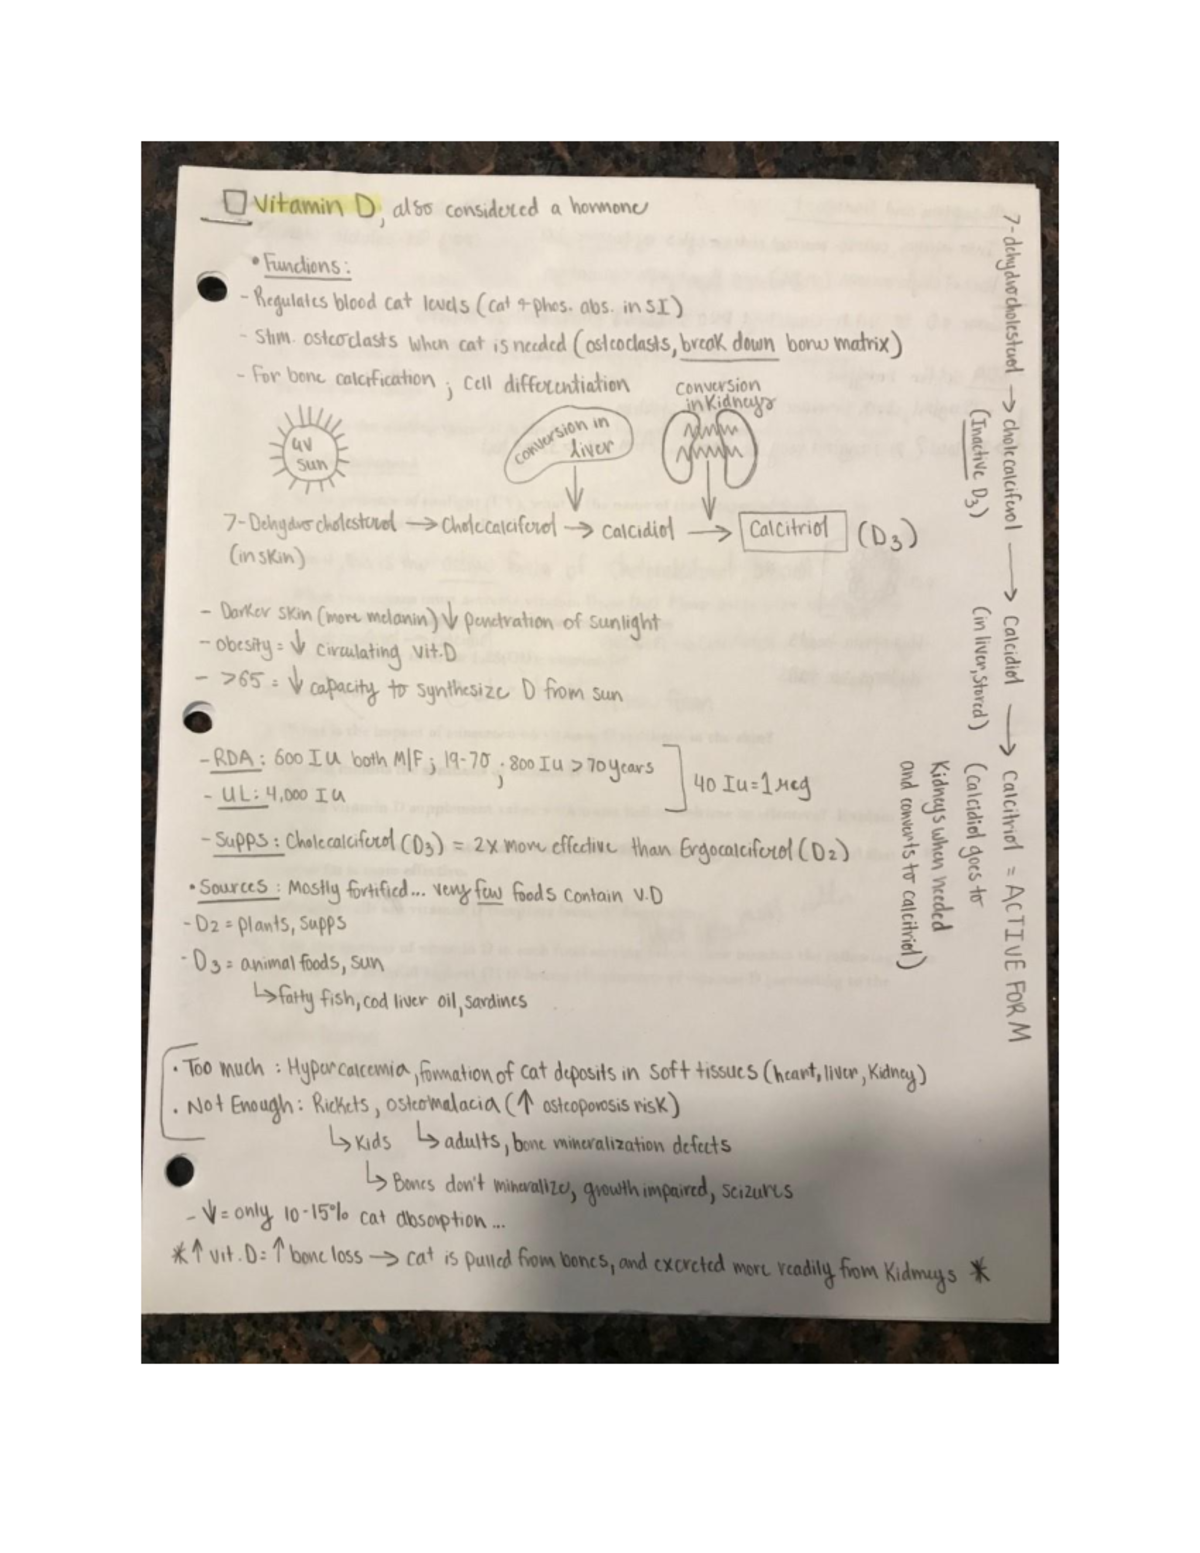 Vitamin D, also considered a hormone
• Functions:
- Regulates blood cat levels (cat + phos. abs. in SI)
- Stim. osteoclasts when cat is needed (osteoclasts, break down bone matrix)
- For bone calcification ; cell differentiation
conversion
in Kidneys
UV
Sun
conversion in
liver
7-Dehydrocholesterol → Cholecalciferol → Calcidiol → Calcitriol (D3)
(in skin)
- Darker skin (more melanin) ↓ penetration of sunlight
- obesity = ↓ circulating vit. D
- >65 = ↓ capacity to synthesize D from sun
- RDA: 600 IU both M/F ; 19-70 ; 800 IU > 70 years
- UL: 4,000 IU
40 IU = 1 mcg
- Supps: Cholecalciferol (D3) = 2x more effective than Ergocalciferol (D2)
• Sources: Mostly fortified... very few foods contain V.D
- D2 = plants, supps
- D3 = animal foods, sun
↳ fatty fish, cod liver oil, sardines
• Too much : Hypercalcemia, formation of cat deposits in soft tissues (heart, liver, Kidney)
• Not Enough: Rickets, osteomalacia (↑ osteoporosis risk)
↳ Kids ↳ adults, bone mineralization defects
↳ Bones don't mineralize, growth impaired, seizures
- ↓ = only 10-15% cat absorption ...
* ↑ vit. D = ↑ bone loss → cat is pulled from bones, and excreted more readily from Kidneys *
7-dehydrocholesterol → cholecalciferol → Calcidiol → calcitriol = ACTIVE FORM
(Inactive D3)
(in liver, stored)
(calcidiol goes to
Kidneys when needed
and converts to calcitriol)